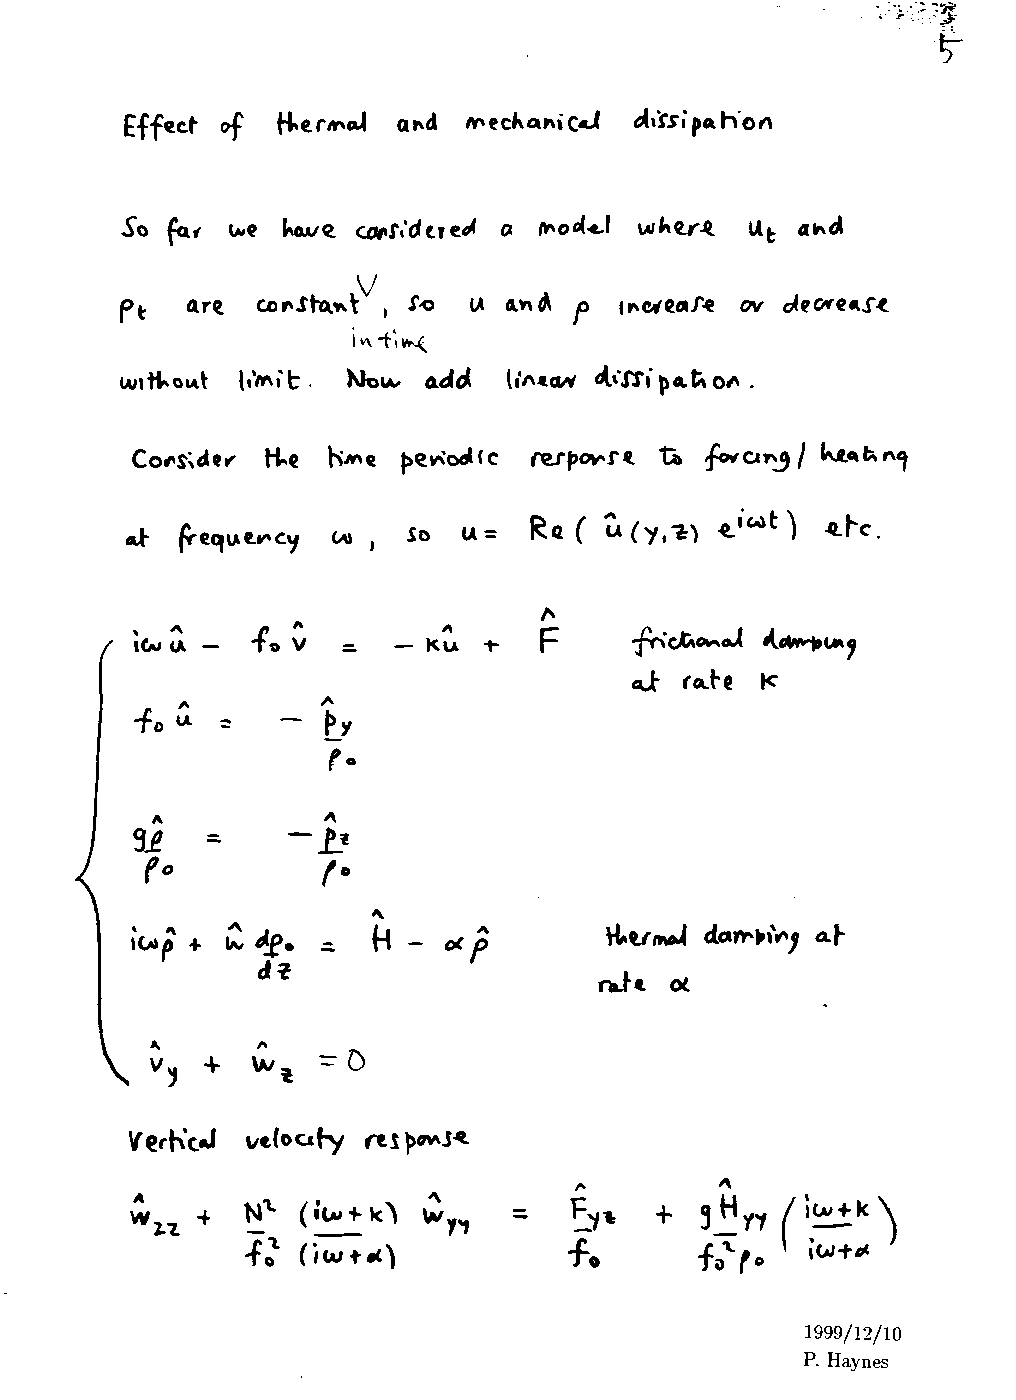 5
Effect of thermal and mechanical dissipation
So far we have considered a model where u_t and
ρ_t are constant in time, so u and ρ increase or decrease
without limit. Now add linear dissipation.
Consider the time periodic response to forcing / heating
at frequency ω, so u = Re ( û (y, z) e^{iωt} ) etc.
iω û − f₀ v̂ = − κ û + F̂ frictional damping
at rate κ
f₀ û = − p̂_y / ρ₀
g ρ̂ / ρ₀ = − p̂_z / ρ₀
iω ρ̂ + ŵ dρ₀/dz = Ĥ − α ρ̂ thermal damping at
rate α
v̂_y + ŵ_z = 0
Vertical velocity response
ŵ_zz + N²/f₀² (iω + κ)/(iω + α) ŵ_yy = F̂_yz / f₀ + g Ĥ_yy / f₀² ρ₀ ( (iω + κ)/(iω + α) )
1999/12/10
P. Haynes